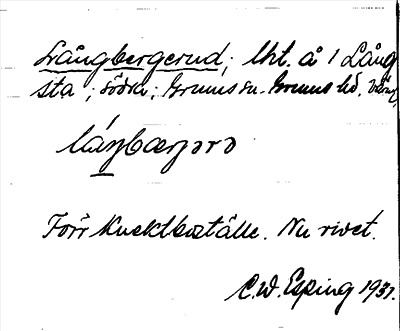 Långbergerud; lht. å 1 Lång
sta; södra; Grums sn. Grums hd, Värml.
låŋbærjərə
Förr knektboställe. Nu rivet.
C.W. Esping 1937.